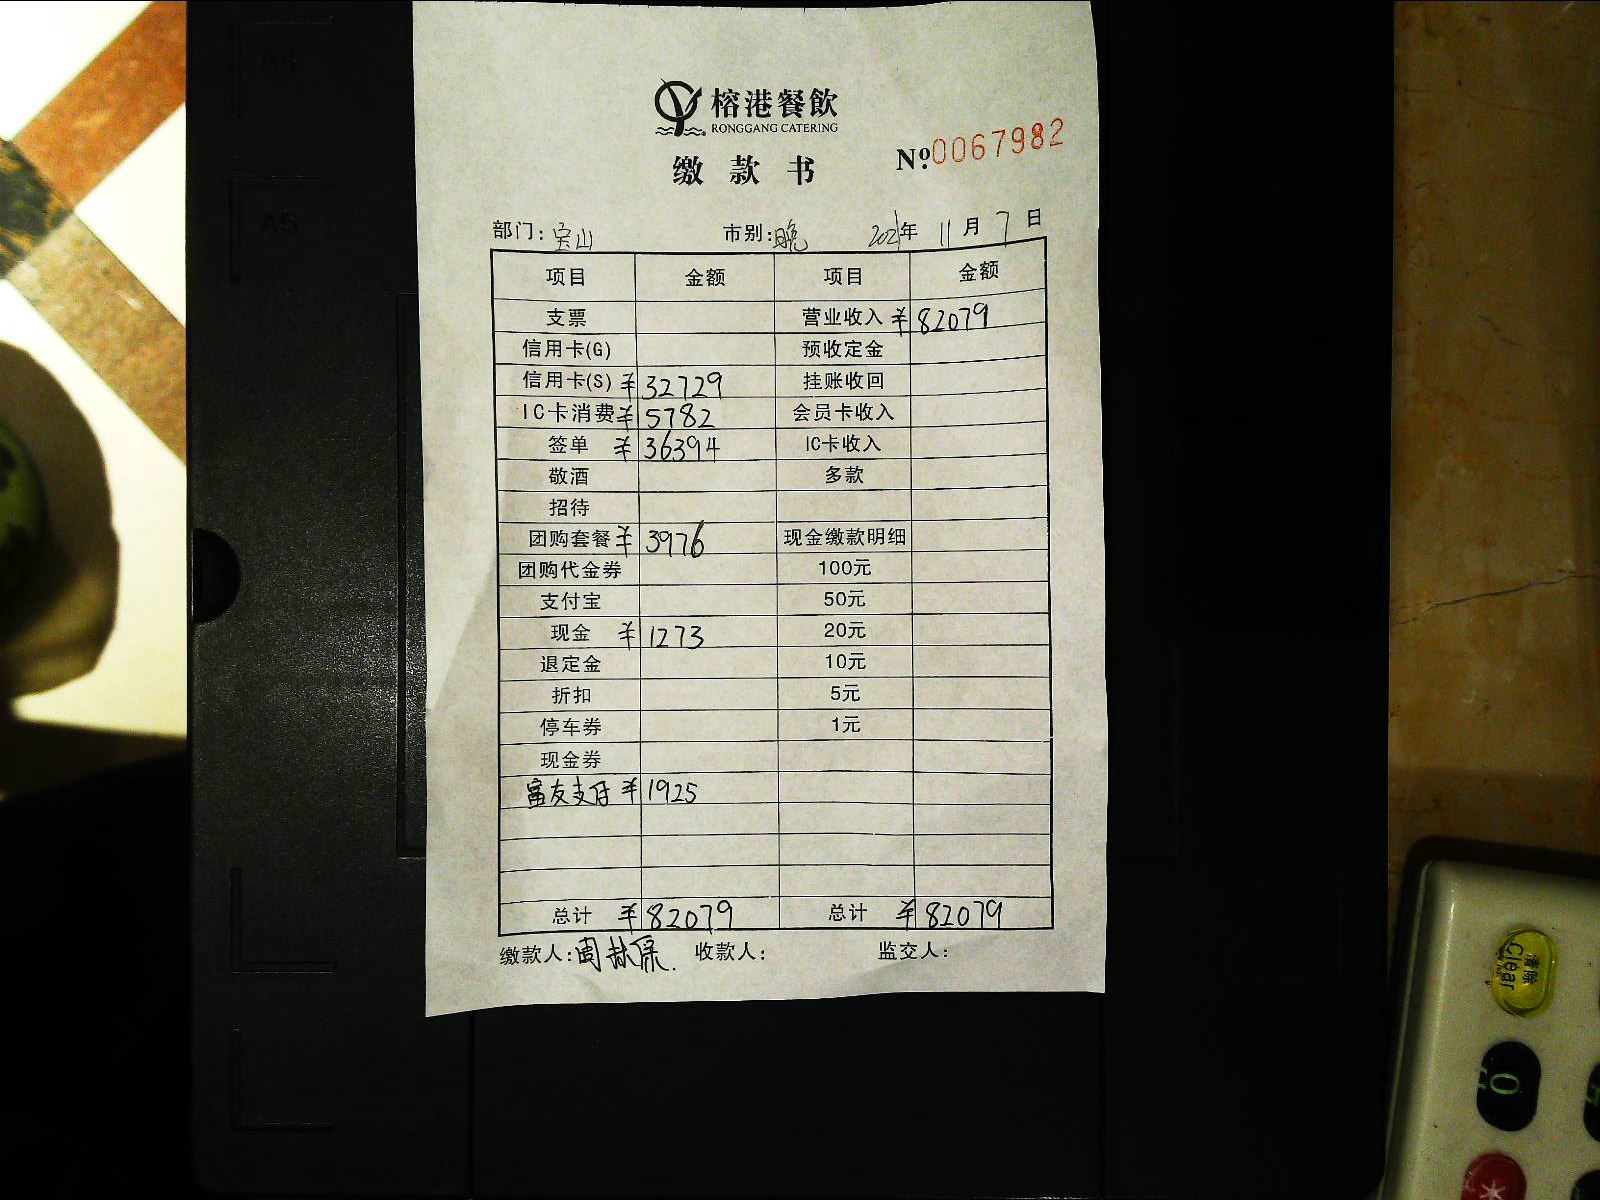 榕港餐飲
RONGGANG CATERING
缴款书
Nº:0067982
部门:宝山 市别:晚 2021年 11月 7日
项目 金额 项目 金额
支票 营业收入 ¥82079
信用卡(G) 预收定金
信用卡(S) ¥32729 挂账收回
IC卡消费 ¥5782 会员卡收入
签单 ¥36394 IC卡收入
敬酒 多款
招待
团购套餐 ¥3976 现金缴款明细
团购代金券 100元
支付宝 50元
现金 ¥1273 20元
退定金 10元
折扣 5元
停车券 1元
现金券
富友支付 ¥1925
总计 ¥82079 总计 ¥82079
缴款人:周 收款人: 监交人:
A4
A5
清除
Clear
0